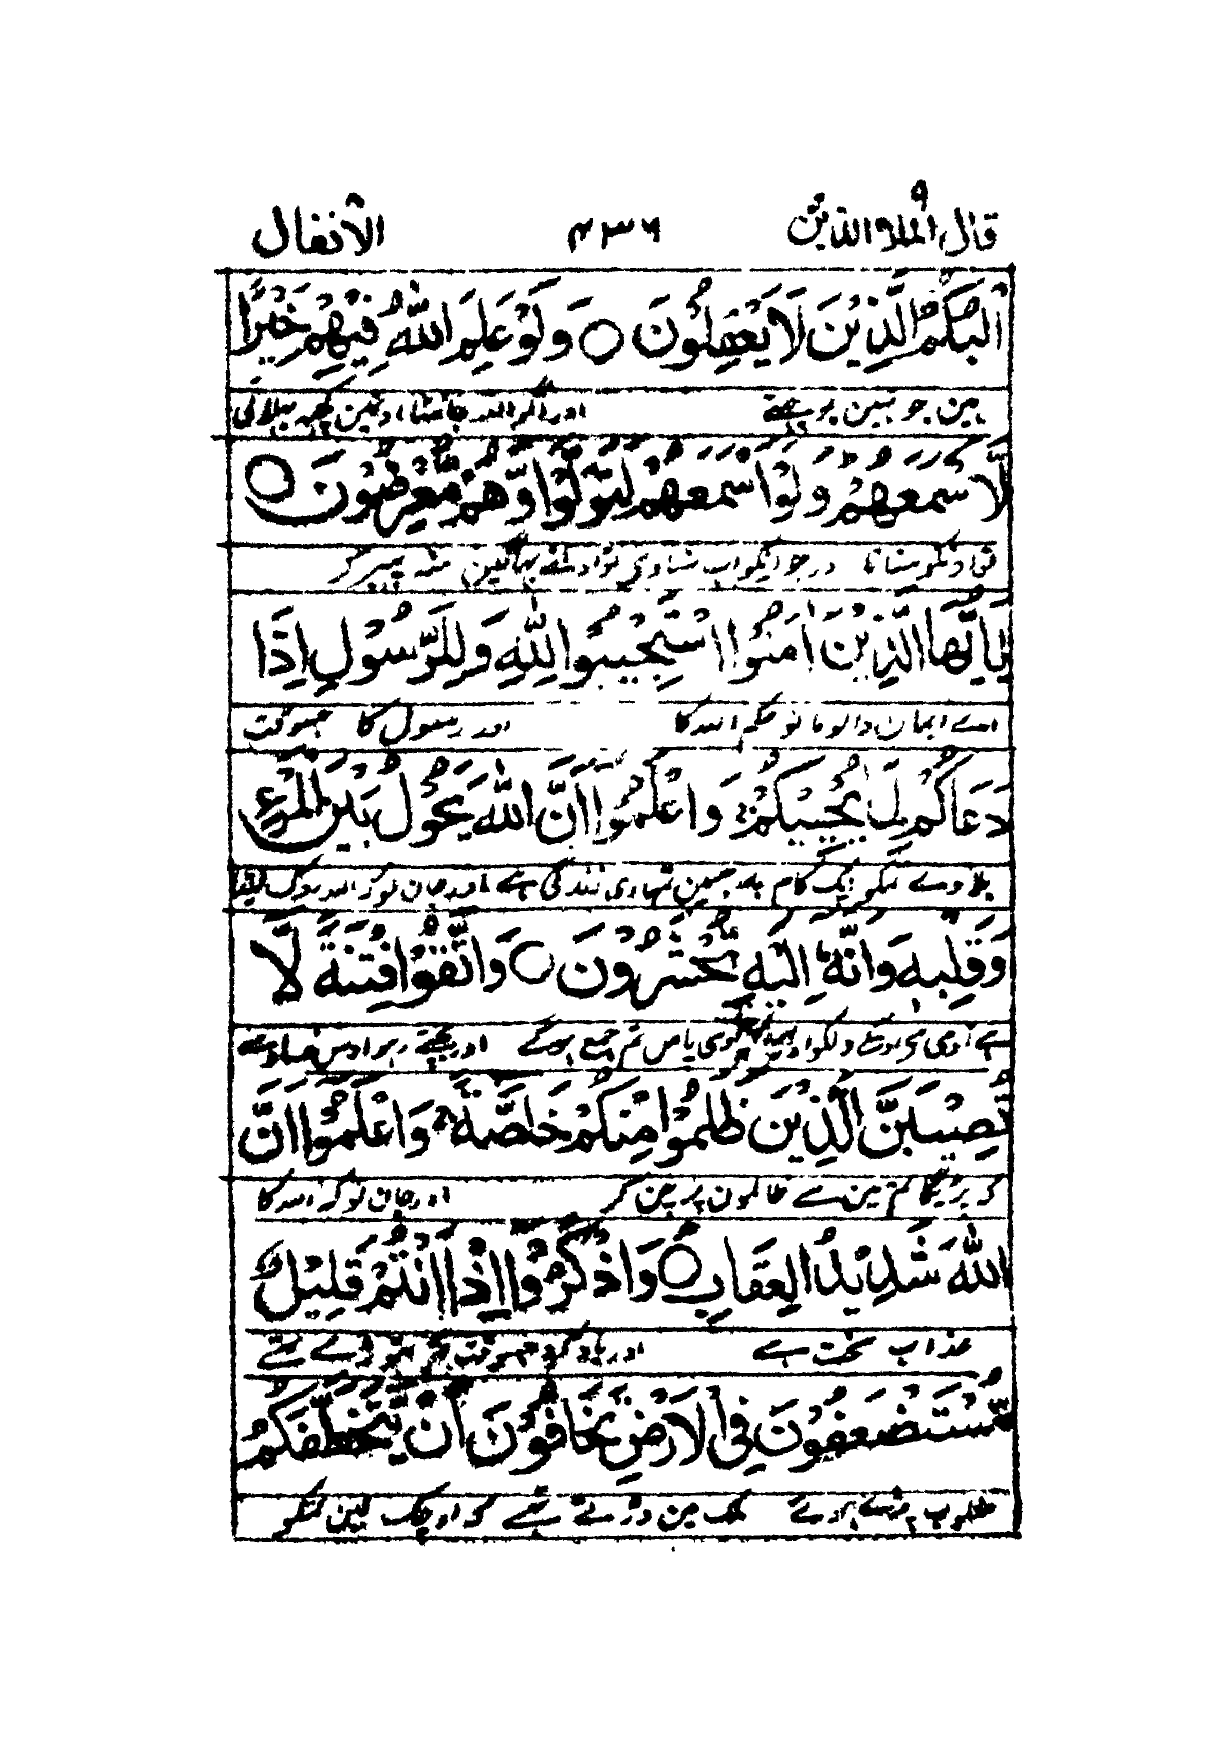 قال الملا الذین ۹ ۴۳۶ الانفال
الْبُكْمُ الَّذِیْنَ لَا یَعْقِلُوْنَ ○ وَلَوْ عَلِمَ اللّٰهُ فِیْهِمْ خَیْرًا
ہین جو نہین بوجھتے اور اگر اللہ جانتا اونمین کچھ بھلائی
لَّاَسْمَعَهُمْ وَلَوْ اَسْمَعَهُمْ لَتَوَلَّوْا وَّهُمْ مُّعْرِضُوْنَ ○
تو اونکو سناتا اور جو انکو اب سناوی تو اولٹے بھاگین منہ پھیر کر
یٰۤاَیُّهَا الَّذِیْنَ اٰمَنُوا اسْتَجِیْبُوْا لِلّٰهِ وَلِلرَّسُوْلِ اِذَا
اے ایمان والو مانو حکم اللہ کا اور رسول کا جسوقت
دَعَاكُمْ لِمَا یُحْیِیْكُمْ وَاعْلَمُوْۤا اَنَّ اللّٰهَ یَحُوْلُ بَیْنَ الْمَرْءِ
بلاوے تمکو ایک کام پر جسمین تمہاری زندگی ہے اور جان لو کہ اللہ روک لیتا
وَقَلْبِهٖ وَاَنَّهٗۤ اِلَیْهِ تُحْشَرُوْنَ ○ وَاتَّقُوْا فِتْنَةً لَّا
ہے آدمی سی اوسکے دلکو اور یہ کہ اوسی پاس تم جمع ہوگے اور بچتے رہو اوس فساد سے
تُصِیْبَنَّ الَّذِیْنَ ظَلَمُوْا مِنْكُمْ خَآصَّةً وَاعْلَمُوْۤا اَنَّ
کہ نہ پڑیگا تم مین سے ظالمون پر چن کر اور جان لو کہ اللہ کا
اللّٰهَ شَدِیْدُ الْعِقَابِ ○ وَاذْكُرُوْۤا اِذْ اَنْتُمْ قَلِیْلٌ
عذاب سخت ہے اور یاد کرو جسوقت تم تھوڑے تھے
مُّسْتَضْعَفُوْنَ فِی الْاَرْضِ تَخَافُوْنَ اَنْ یَّتَخَطَّفَكُمُ
مغلوب پڑے ہوے ملک مین ڈرتے تھے کہ اوچک لین تمکو